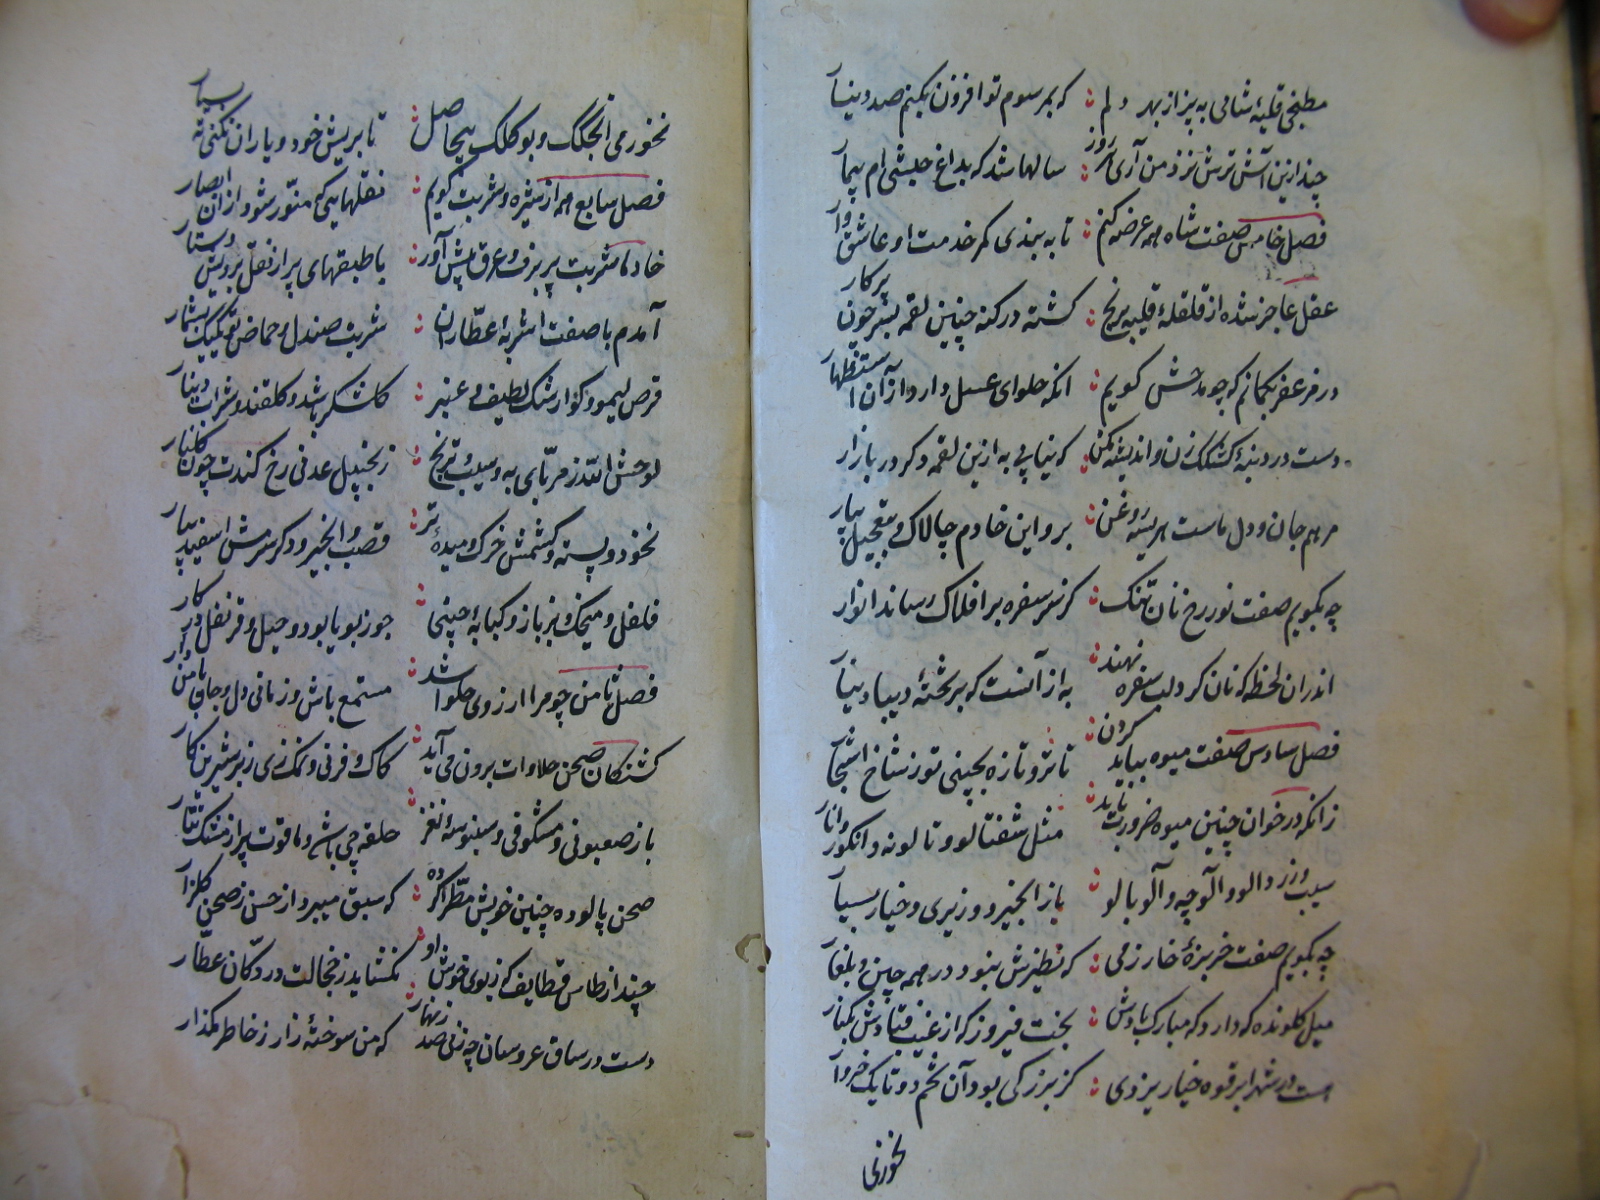 مطبخی قلیهٔ شامی به پز از بهر دلم که بمرسوم تو افزون بکنم صد دینار
چند ازین آش ترش نزد من آری هر روز سالها شد که بداغ حبشی ام بیمار
فصل خامس صفت شاه همه عرضه کنم تا به بندی کمر خدمت او عاشق وار
عقل عاجز شده از قلقلهٔ قلیه برنج گشته در کنه چنین لقمه بشر چون پرکار
در مزعفر بگمانم که چه مدحش گویم انکه حلوای عسل دارد از آن استظهار
دست در دنبهٔ کشکک زن و اندیشه مکن که نیابی به ازین لقمه دگر در بازار
مرهم جان و دل ماست هریسه روغن برو این خادم چالاک و بتعجیل بیار
چه بگویم صفت نور رخ نان تنک کز سر سفره بر افلاک رساند انوار
اندران لحظه که نان گرد لب سفره نهند به از آنست که بر تختهٔ دیبا دینار
فصل سادس صفت میوه بباید کردن تا تر و تازه بچینی تو ز شاخ اشجار
زانکه در خوان چنین میوه ضرورت باید مثل شفتالو و تالونه و انگور و انار
سیب و زردالو و آلوچه و آلوبالو باز انجیر و وزیری و خیار بسیار
چه بگویم صفت خربزهٔ خارزمی که نظیرش نبود در همه چین و بلغار
میل کلونده که دارد که مبارک بادش بخت فیروز که از غیب فتادش بکنار
هست در شهر ابرقوه خیار یزدی کز بزرگی بود آن تخم دو تا یک خروار
نخوری
نخوری انجکک و بوکلک بیحاصل تا بریش خود و یاران نکنی تف بسیار
فصل سابع همه از شیره و شربت گویم نقلهایی که منور شود از آن ابصار
خادما شربت پر برف و عرق پیش آور با طبقهای پر از نقل بر ویش دستار
آمدم با صفت اشربهٔ عطاران شربت صندل و حماض تو یکیک بشمار
قرص لیمو و گوارشک لطیف و عنبر کاشکر باشد و گلقند و شراب دینار
لوحش الله ز مربای به و سیب و ترنج زنجبیل عدنی رخ کندت چون گلنار
نخود و پسته و کشمش خرک و میدهٔ تر قصب و انجیر و دگر مرمش اسفید بیار
فلفل و میخک و بزباز و کبابهٔ چینی جوز بویا بود و هیل و قرنفل در کار
فصل ثامن چو مرا ارزوی حلوا شد مستمع باش و زمانی دل و جان با من دار
کشتکان صحن حلاوات برون می آید کاک و فرنی و نمک زی زبر شیرین کار
باز صعبونی و مشکوفی و سنبوسهٔ نغز حلقه چی باش و ماقوت پر از مشک نثار
صحن پالوده چنین خویش مطرا کرده که سبق میبرد از حسن ز صحن گلزار
چند از طاس قطایف که ز بوی خوش او نکشاید ز خجالت در دکان عطار
دست در ساق عروسان چه زنی صد زنهار که من سوختهٔ زار ز خاطر مگذار